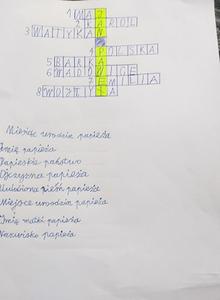 1 MAJ
2 KAROL
3 WATYKAN
4 POLSKA
5 BARKA
6 WADOWICE
7 EMILIA
8 WOJTYŁA
Miesiąc urodzin papieża
Imię papieża
Papieskie państwo
Ojczyzna papieża
Ulubiona pieśń papieża
Miejsce urodzin papieża
Imię matki papieża
Nazwisko papieża